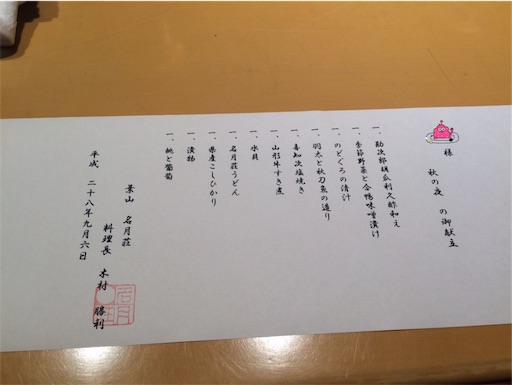 様
秋の夜 の御献立
一、勘次郎胡瓜利久酢和え
一、季節野菜と合鴨味噌漬け
一、のどぐろの清汁
一、羽太と秋刀魚の造り
一、喜知次塩焼き
一、山形牛すき煮
一、水貝
一、名月荘うどん
一、県産こしひかり
一、漬物
一、桃と葡萄
葉山 名月荘
料理長 木村 勝利
平成 二十八年九月六日